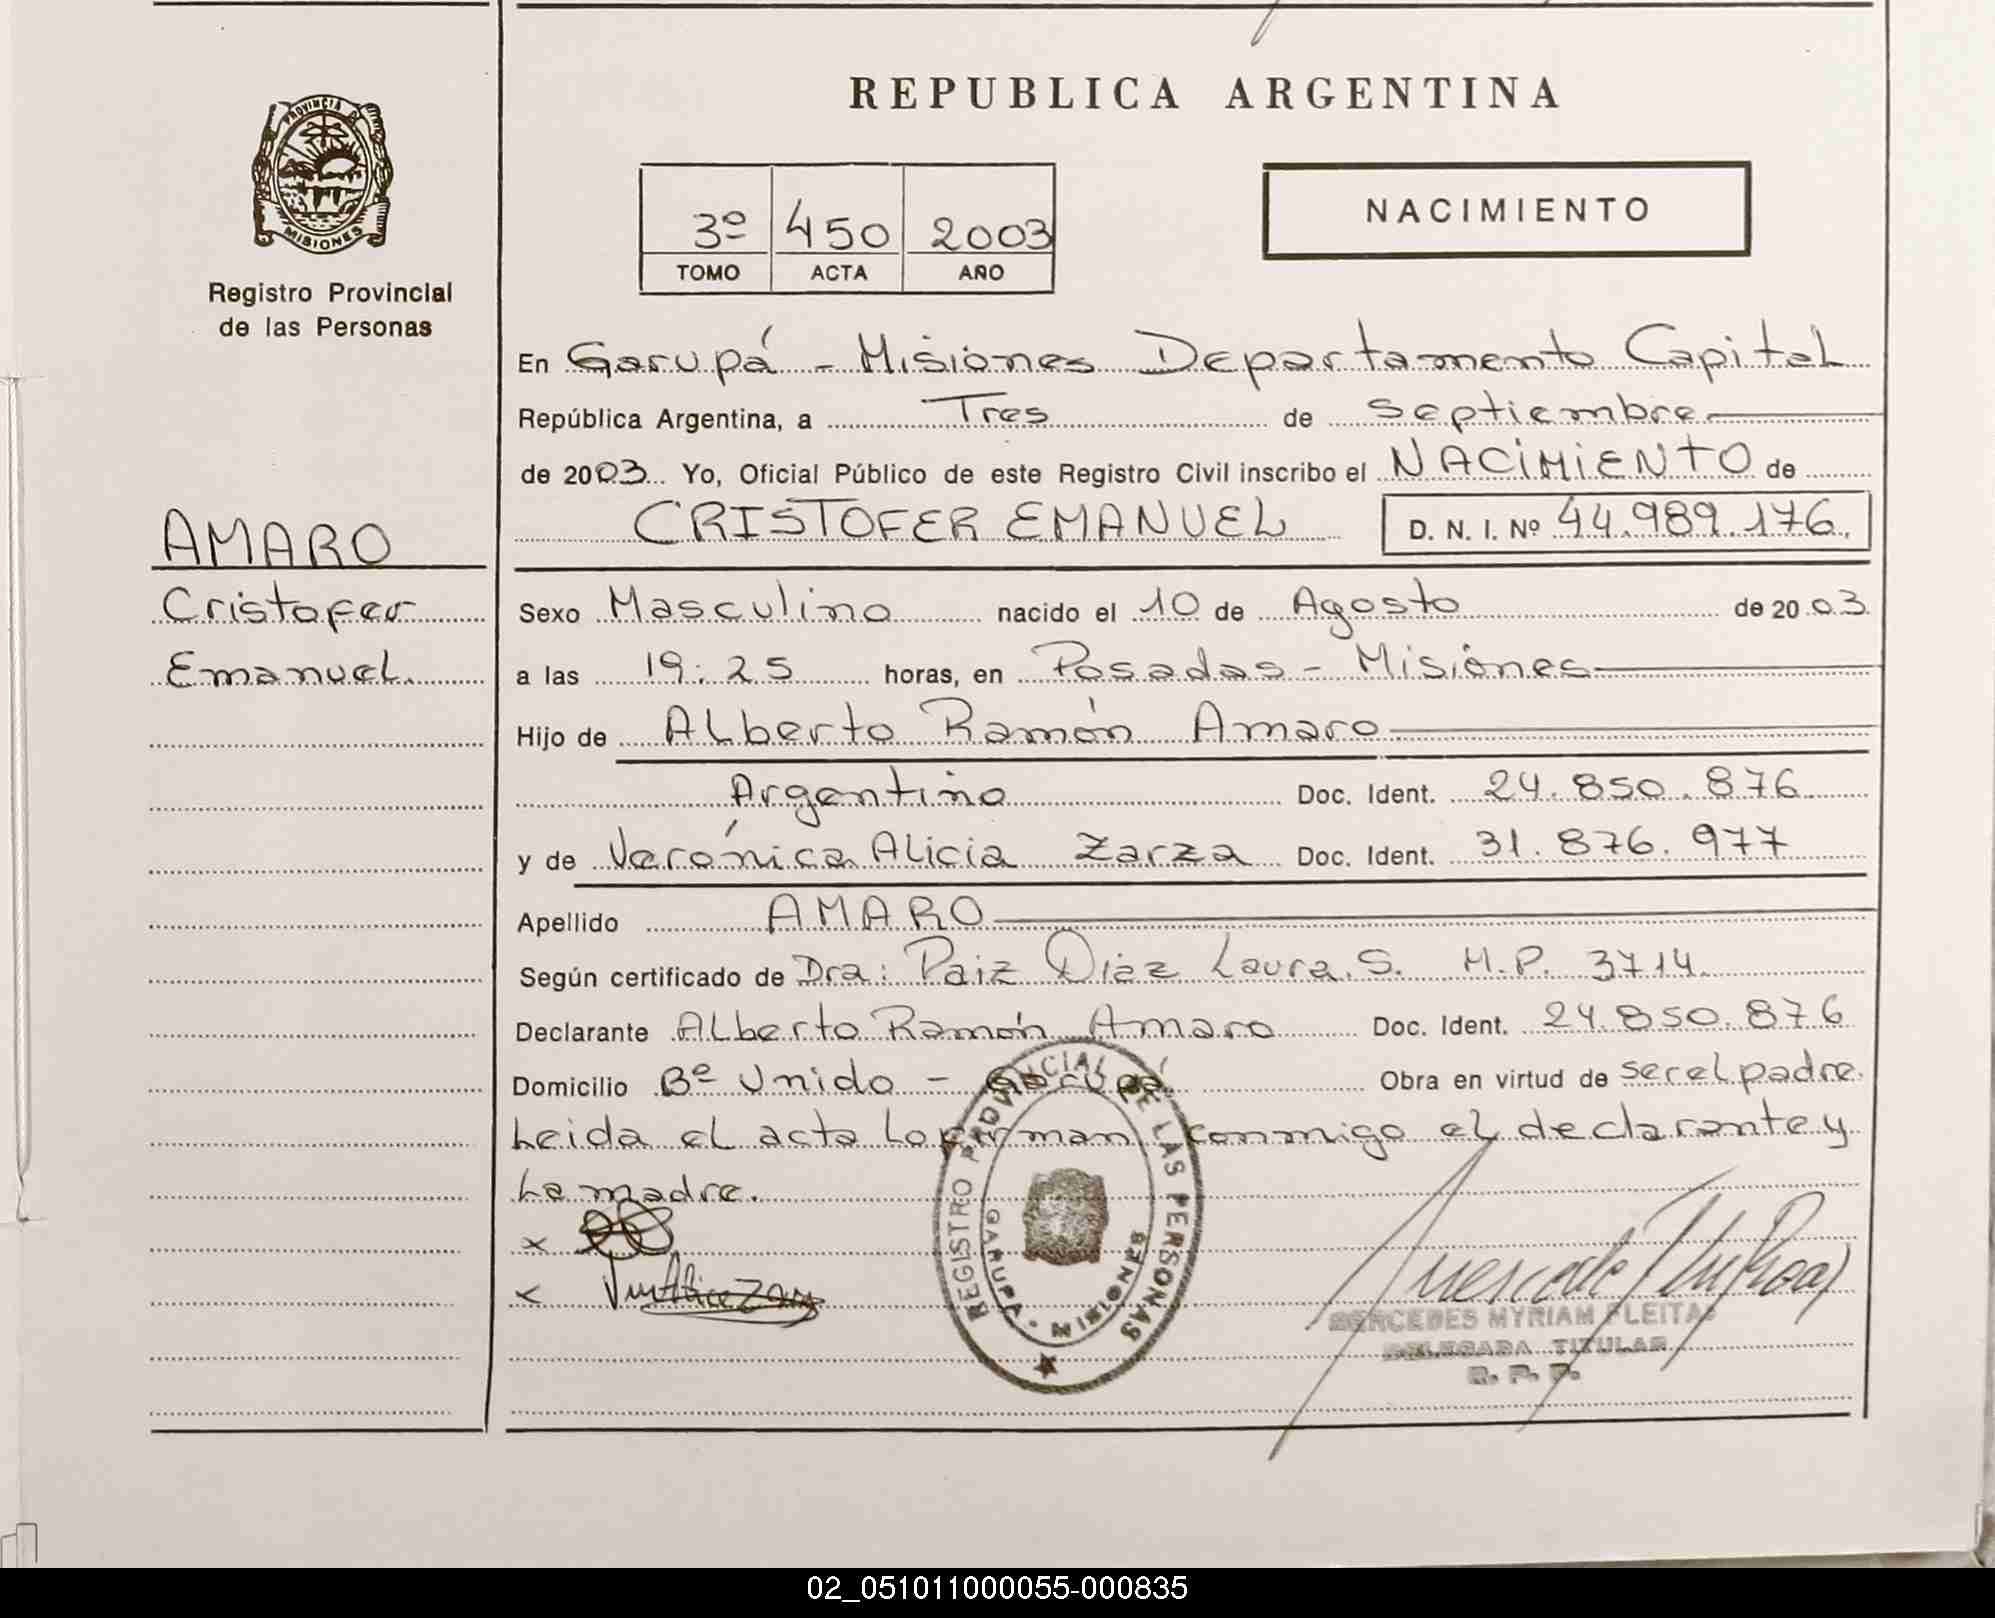 REPUBLICA ARGENTINA
PROVINCIA DE
MISIONES
Registro Provincial
de las Personas
3º 450 2003
TOMO ACTA AÑO
NACIMIENTO
En Garupá - Misiones Departamento Capital
República Argentina, a Tres de septiembre
de 2003 Yo, Oficial Público de este Registro Civil inscribo el NACIMIENTO de
CRISTOFER EMANUEL D. N. I. Nº 44.989.176.
AMARO
Cristofer
Emanuel.
Sexo Masculino nacido el 10 de Agosto de 2003
a las 19:25 horas, en Posadas - Misiones
Hijo de Alberto Ramón Amaro
Argentino Doc. Ident. 24.850.876
y de Verónica Alicia Zarza Doc. Ident. 31.876.977
Apellido AMARO
Según certificado de Dra: Paiz Diaz Laura S. M.P. 3714
Declarante Alberto Ramón Amaro Doc. Ident. 24.850.876
Domicilio Bº Unido - Garupá Obra en virtud de ser el padre.
Leida el acta la firman conmigo el declarante y
la madre.
REGISTRO PROVINCIAL DE LAS PERSONAS
GARUPA - MISIONES
MERCEDES MYRIAM FLEITAS
DELEGADA TITULAR
R. P. P.
02_051011000055-000835